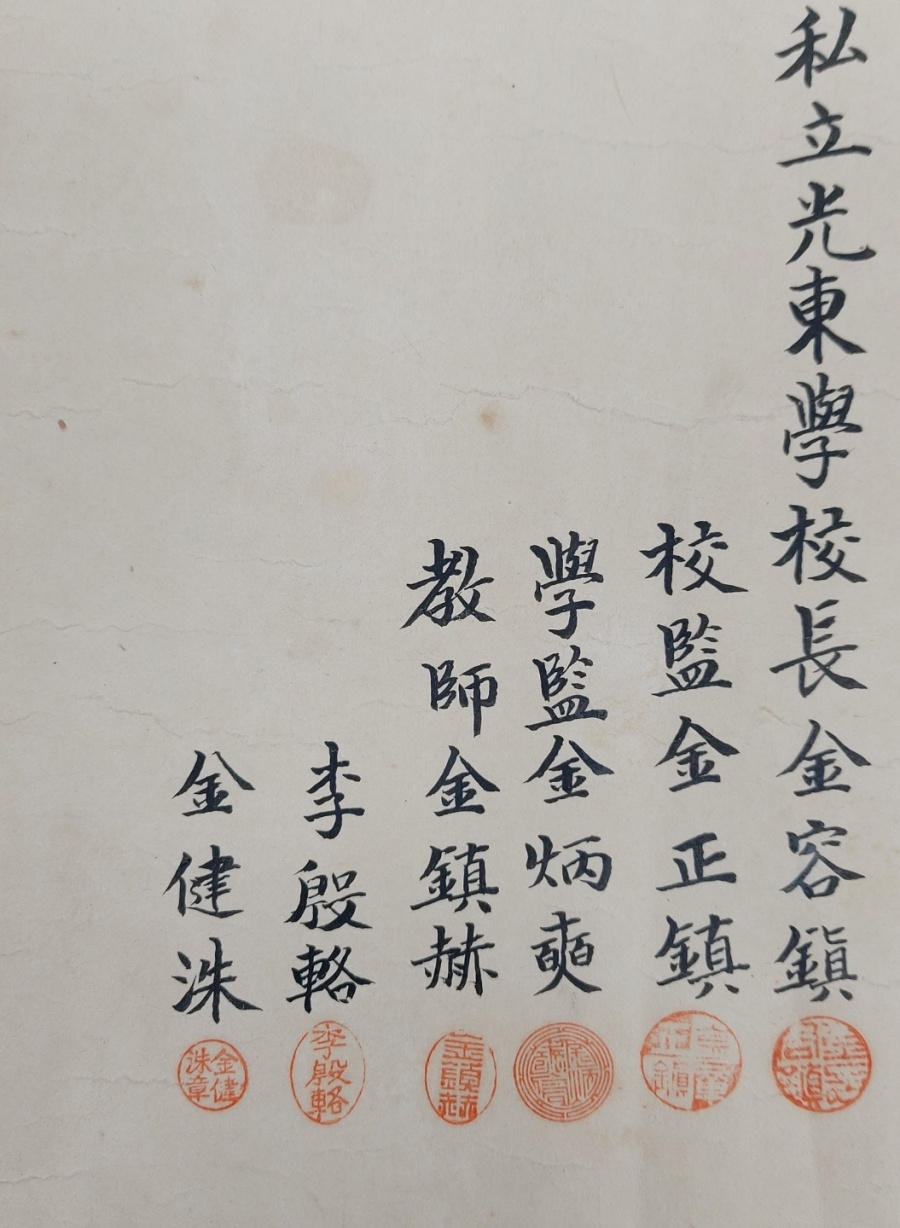 私立光東學校長金容鎭
校監金正鎭
學監金炳奭
教師金鎮赫
李殷輅
金健洙
李殷輅
金健洙章